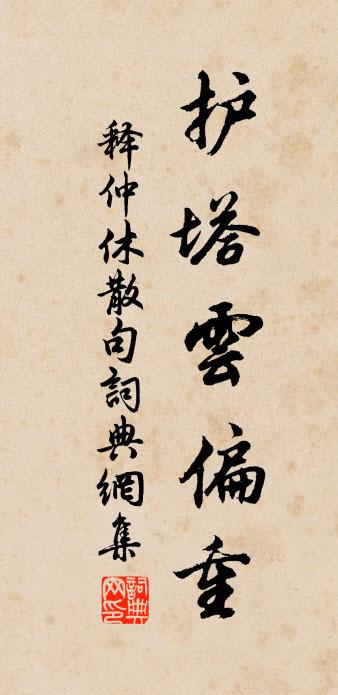 护塔雲偏重
释仲休散句詞典網集
詞典网印